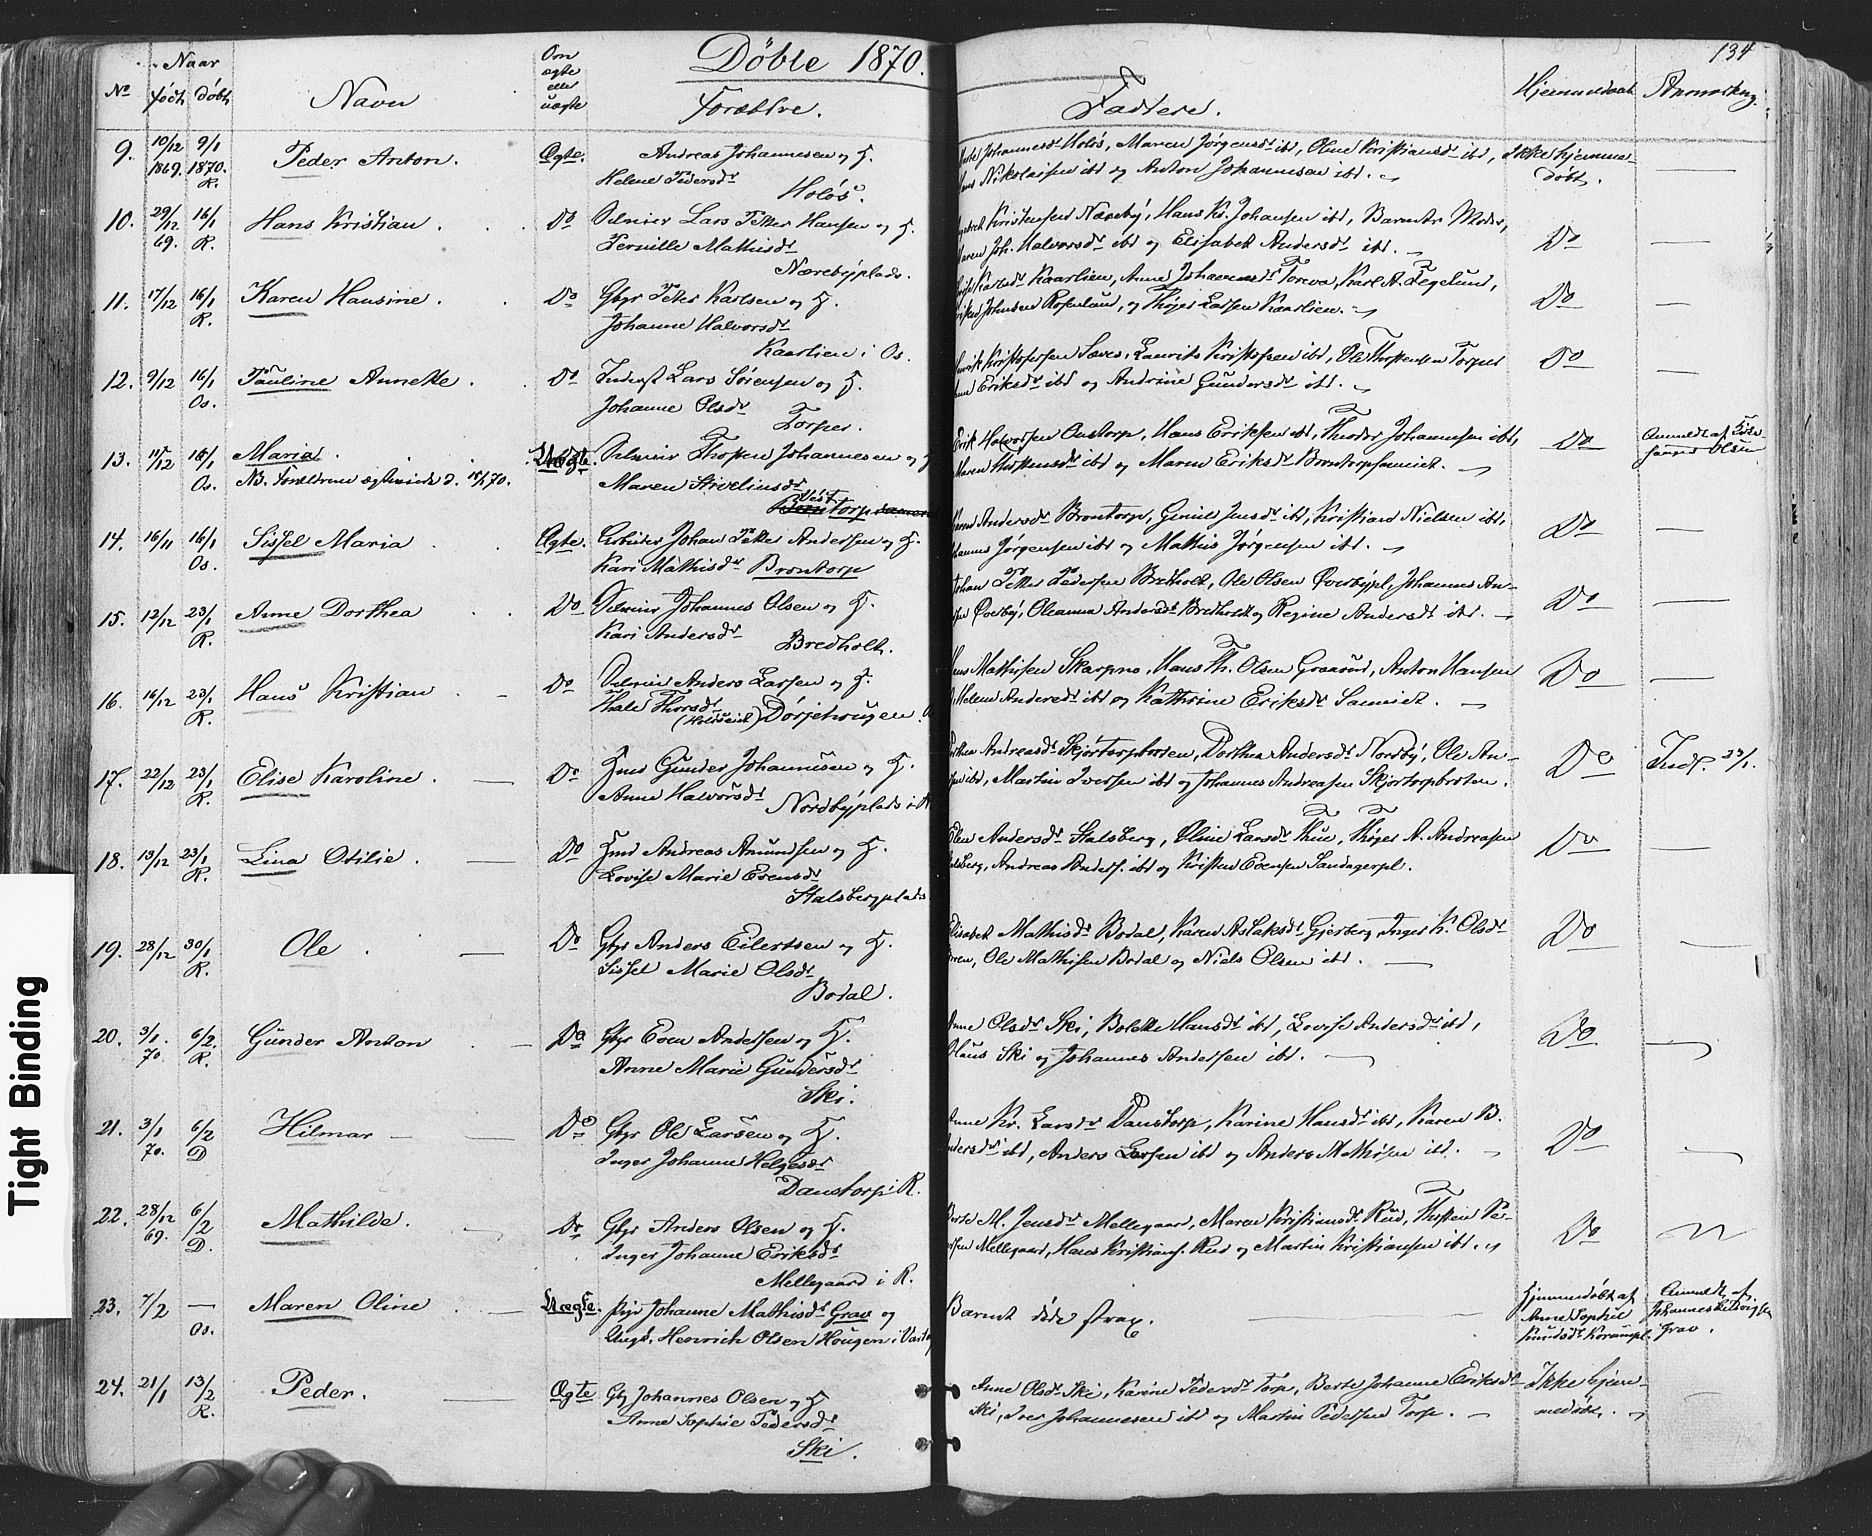 Døbte 1870.
134
No
Naar
født
døbt
Navn
Om ægte eller uægte
Forældre.
Faddere.
Hjemmedøbt
Anmærkng.
9. 10/12 1869. 9/1 1870. R. Peder Anton. Ægte. Andreas Johannesen og H.
Helene Pedersdr
Holøs.
Johannesdr Holøs, Maren Jørgensdr ibd, Oline Kristiansdr ibd,
Nikolaisen ibd og Anton Johannesen ibd.
Ikke hjemme
døbt.
10. 29/12 69. 16/1 R. Hans Kristian. Do Selveier Lars Petter Hansen og H.
Pernille Mathisdr
Nærebyplads.
Kristensen Næreby, Hans Kr. Johansen ibd, Barnets Moder,
Maren Joh. Halvorsdr ibd og Elisabet Andersdr ibd.
Do
11. 17/12 16/1 R. Karen Hansine. Do Gbgr Peter Karlsen og H.
Johanne Halvorsdr
Kaarlien i Os.
Karlsdr Kaarlien, Anne Johannesdr Karl A. Fegelund,
Johnsen Rosenlund, og Thøger Larsen Kaarlien.
Do
12. 9/12 16/1 Os. Pauline Annette. Do Inderst Lars Sørensen og H.
Johanne Olsdr
Torper.
Kristofersen ibd, Ole Thorstensen Torper
Eriksdr ibd og Andrine Gundersdr ibd.
Do
13. 11/12 16/1 Os. Maria. Uægte. Selveier Thosten Johannesen og
NB. Forældrene ægteviede d. 15/1 70.
Maren
Vest
torp
Erik Halvorsen Oustorp, Hans Eriksen ibd, Theodor Johannesen ibd,
Maren Thostensdr ibd og Maren Eriksdr Brontorp
Do
Anmeldt af
Olsen
14. 16/11 16/1 Os. Sissel Maria. Ægte. Arbeider Johan Petter Andersen og H.
Kari Mathisdr Brontorp
Andersdr Brontorp, Gunild Jensdr ibd, Kristian Nielsen ibd,
Johannes Jørgensen ibd og Mathis Jørgensen ibd.
Do
15. 12/12 23/1 R. Anne Dorthea. Do Selveier Johannes Olsen og H.
Kari Andersdr
Bredholt.
Johan Petter Pedersen Bredholt, Ole Olsen Øverbypl, Johannes An-
Øverby, Oleanna Andersdr Bredholt og Regine Andersdr ibd.
Do
16. 16/12 23/1 R. Hans Kristian. Do Selveier Anders Larsen og H.
Thale Thorsdr
Dørjehougen.
Hans Mathisen Skarpno, Hans Th. Olsen Graarud, Anton Hansen
Helene Andersdr ibd og Kathrine Eriksdr
Do
17. 22/12 23/1 R. Elise Karoline. Do Hmd Gunder Johannesen og H.
Anne Halvorsdr Nordbyplads i
Andreasdr Skjortorpbraten, Dorthea Andersdr Nordby, Ole An-
ibd, Martin Iversen ibd og Johannes Andreasen Skjortorpbroten.
Do
Indf. 23/1.
18. 13/12 23/1 R. Lina Otilie. Do Hmd Andreas Amundsen og H.
Lovise Marie Evensdr
Stalsbergplads
Elen Andersdr Stalsberg, Oline Larsdr Thue, Thøger A. Andreasen
Andreas Anders. ibd og Kristen Evensen Sandagerpl.
Do
19. 28/12 30/1 R. Ole. Do Gbgr Anders Eilertsen og H.
Sissel Marie Olsdr
Bodal.
Elisabet Mathisdr Bodal, Karen Aslaksdr Gjerberg, Inger K. Olsdr
Ole Mathisen Bodal og Niels Olsen ibd.
Do
20. 3/1. 70. 6/2. R. Gunder Anton Do Gbgr Even Andersen og H.
Anne Marie Gundersdr
Ski.
Anne Olsdr Ski, Bolette Hansdr ibd, Lovise Andersdr ibd,
Olaus Ski og Johannes Andersen ibd.
Do
21. 3/1 70. 6/2 D Hilmar Do Gbgr Ole Larsen og H.
Inger Johanne Helgesdr
Danstorp i R.
Anne Kr. Larsdr Danstorp, Karine Hansdr ibd, Karen B.
Andersdr ibd, Anders Larsen ibd og Anders Mathisen ibd.
Do
22. 28/12 69. 6/2 D. Mathilde. Do Gbgr Anders Olsen og H.
Inger Johanne Eriksdr
Mellegaard i R.
Berte M. Jensdr Mellegaard, Maren Kristiansdr Rud, Thosten Pe-
Mellegaard, Hans Kristians. Rud og Martin Kristiansen ibd.
Do
23. 7/2 — Os. Maren Oline Uægte. Pige Johanne Mathisdr Grav og
Ungk. Henrich Olsen Hougen i
Barnet døde strax.
Hjemmedøbt af
Anne Sophie
Knudsdr
Anmeldt af
Johannes
Grav.
24. 21/1 13/2 R. Peder. Ægte Gb Johannes Olsen og H
Anne Sophie Pedersdr
Ski.
Anne Olsdr Ski, Karine Pedersdr Torp, Berte Johanne Eriksdr
Ski, Iver Johannesen ibd og Martin Pedersen Torp.
Ikke hjem-
medøbt.
Tight Binding